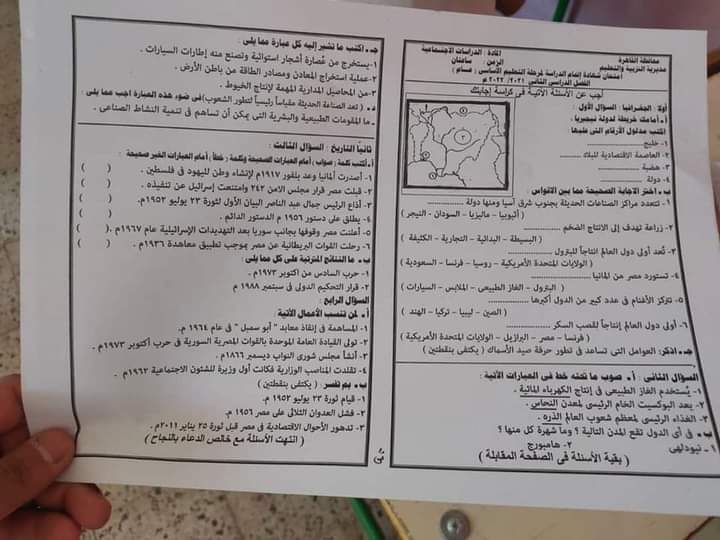 محافظة القاهرة
مديرية التربية والتعليم
المادة: الدراسات الاجتماعية
الزمن: ساعتان
امتحان شهادة إتمام الدراسة لمرحلة التعليم الأساسى / عام
الفصل الدراسى الثانى ٢٠٢١/ ٢٠٢٢ م
أجب عن الأسئلة الآتية فى كراسة إجابتك
أولا : الجغرافيا : السؤال الأول :
أ - أمامك خريطة لدولة نيجيريا،
اكتب مدلول الأرقام التى عليها
١- خليج ..........
٢- العاصمة الاقتصادية للبلاد ..........
٣- هضبة ..........
٤- دولة ..........
ب - اختر الاجابة الصحيحة مما بين الأقواس :
١- تتعدد مراكز الصناعات الحديثة بجنوب شرق آسيا ومنها دولة ..........
( أثيوبيا - ماليزيا - السودان - النيجر )
٢- زراعة تهدف إلى الانتاج الضخم ..........
( البسيطة - البدائية - التجارية - الكثيفة )
٣- تُعد أولى دول العالم انتاجاً للبترول ..........
( الولايات المتحدة الأمريكية - روسيا - فرنسا - السعودية )
٤- تستورد مصر من المانيا ..........
( البترول - الغاز الطبيعى - الملابس - السيارات )
٥- تتركز الأغنام فى عدد كبير من الدول أكبرها ..........
( الصين - ليبيا - تركيا - الهند )
٦- أولى دول العالم إنتاجاً لقصب السكر ..........
( فرنسا - مصر - البرازيل - الولايات المتحدة الأمريكية )
جـ - اذكر: العوامل التى تساعد فى تطور حرفة صيد الأسماك ( يكتفى بنقطتين )
السؤال الثانى : أ - صوب ما تحته خط فى العبارات الآتية :
١- يُستخدم الغاز الطبيعى فى إنتاج الكهرباء المائية .
٢- يعد البوكسيت الخام الرئيسى لمعدن النحاس .
٣- الغذاء الرئيسى لمعظم شعوب العالم الذره .
ب - فى أى الدول تقع المدن التالية ؟ وما شهرة كل منها ؟
١ - نيودلهى
٢- هامبورج
( بقية الأسئلة فى الصفحة المقابلة )
جـ - اكتب ما تشير إليه كل عبارة مما يلى :
١- يستخرج من عُصارة أشجار استوائية وتصنع منه إطارات السيارات .
٢- عملية استخراج المعادن ومصادر الطاقة من باطن الأرض .
٣- من المحاصيل المدارية المهمة لإنتاج الخيوط .
د - ( تعد الصناعة الحديثة مقياساً رئيسياً لتطور الشعوب) فى ضوء هذه العبارة اجب عما يلى :
- ما المقومات الطبيعية والبشرية التى يمكن أن تساهم فى تنمية النشاط الصناعى .
ثانياً التاريخ : السؤال الثالث :
أ - اكتب كلمة ( صواب ) أمام العبارات الصحيحة وكلمة ( خطأ ) أمام العبارات الغير صحيحة
١- أصدرت ألمانيا وعد بلفور ١٩١٧م لإنشاء وطن لليهود فى فلسطين . ( )
٢- قبلت مصر قرار مجلس الامن ٢٤٢ وامتنعت إسرائيل عن تنفيذه . ( )
٣- أذاع الرئيس جمال عبد الناصر البيان الأول لثورة ٢٣ يوليو ١٩٥٢م. ( )
٤- يطلق على دستور ١٩٥٦ م الدستور الدائم . ( )
٥- أعلنت مصر وقوفها بجانب سوريا بعد التهديدات الإسرائيلية عام ١٩٦٧م . ( )
٦- رحلت القوات البريطانية عن مصر بموجب تطبيق معاهدة ١٩٣٦ م . ( )
ب - ما النتائج المترتبة على كل مما يلى :
١- حرب السادس من أكتوبر ١٩٧٣م .
٢- قرار التحكيم الدولى فى سبتمبر ١٩٨٨ م
السؤال الرابع :
أ - لمن تنسب الأعمال الآتية :
١- المساهمة فى إنقاذ معابد " أبو سمبل " فى عام ١٩٦٤ م .
٢- تولى القيادة العامة الموحدة بالقوات المصرية السورية فى حرب أكتوبر ١٩٧٣م .
٣- أنشأ مجلس شورى النواب ديسمبر ١٨٦٦م .
٤- تقلدت المناصب الوزارية فكانت أول وزيرة للشئون الاجتماعية ١٩٦٢م .
ب - بم تفسر : ( يكتفى بنقطتين )
١- قيام ثورة ٢٣ يوليو ١٩٥٢ م .
٢- فشل العدوان الثلاثى على مصر ١٩٥٦ م .
٣- تدهور الأحوال الاقتصادية فى مصر قبل ثورة ٢٥ يناير ٢٠١١ م .
( انتهت الأسئلة مع خالص الدعاء بالنجاح )